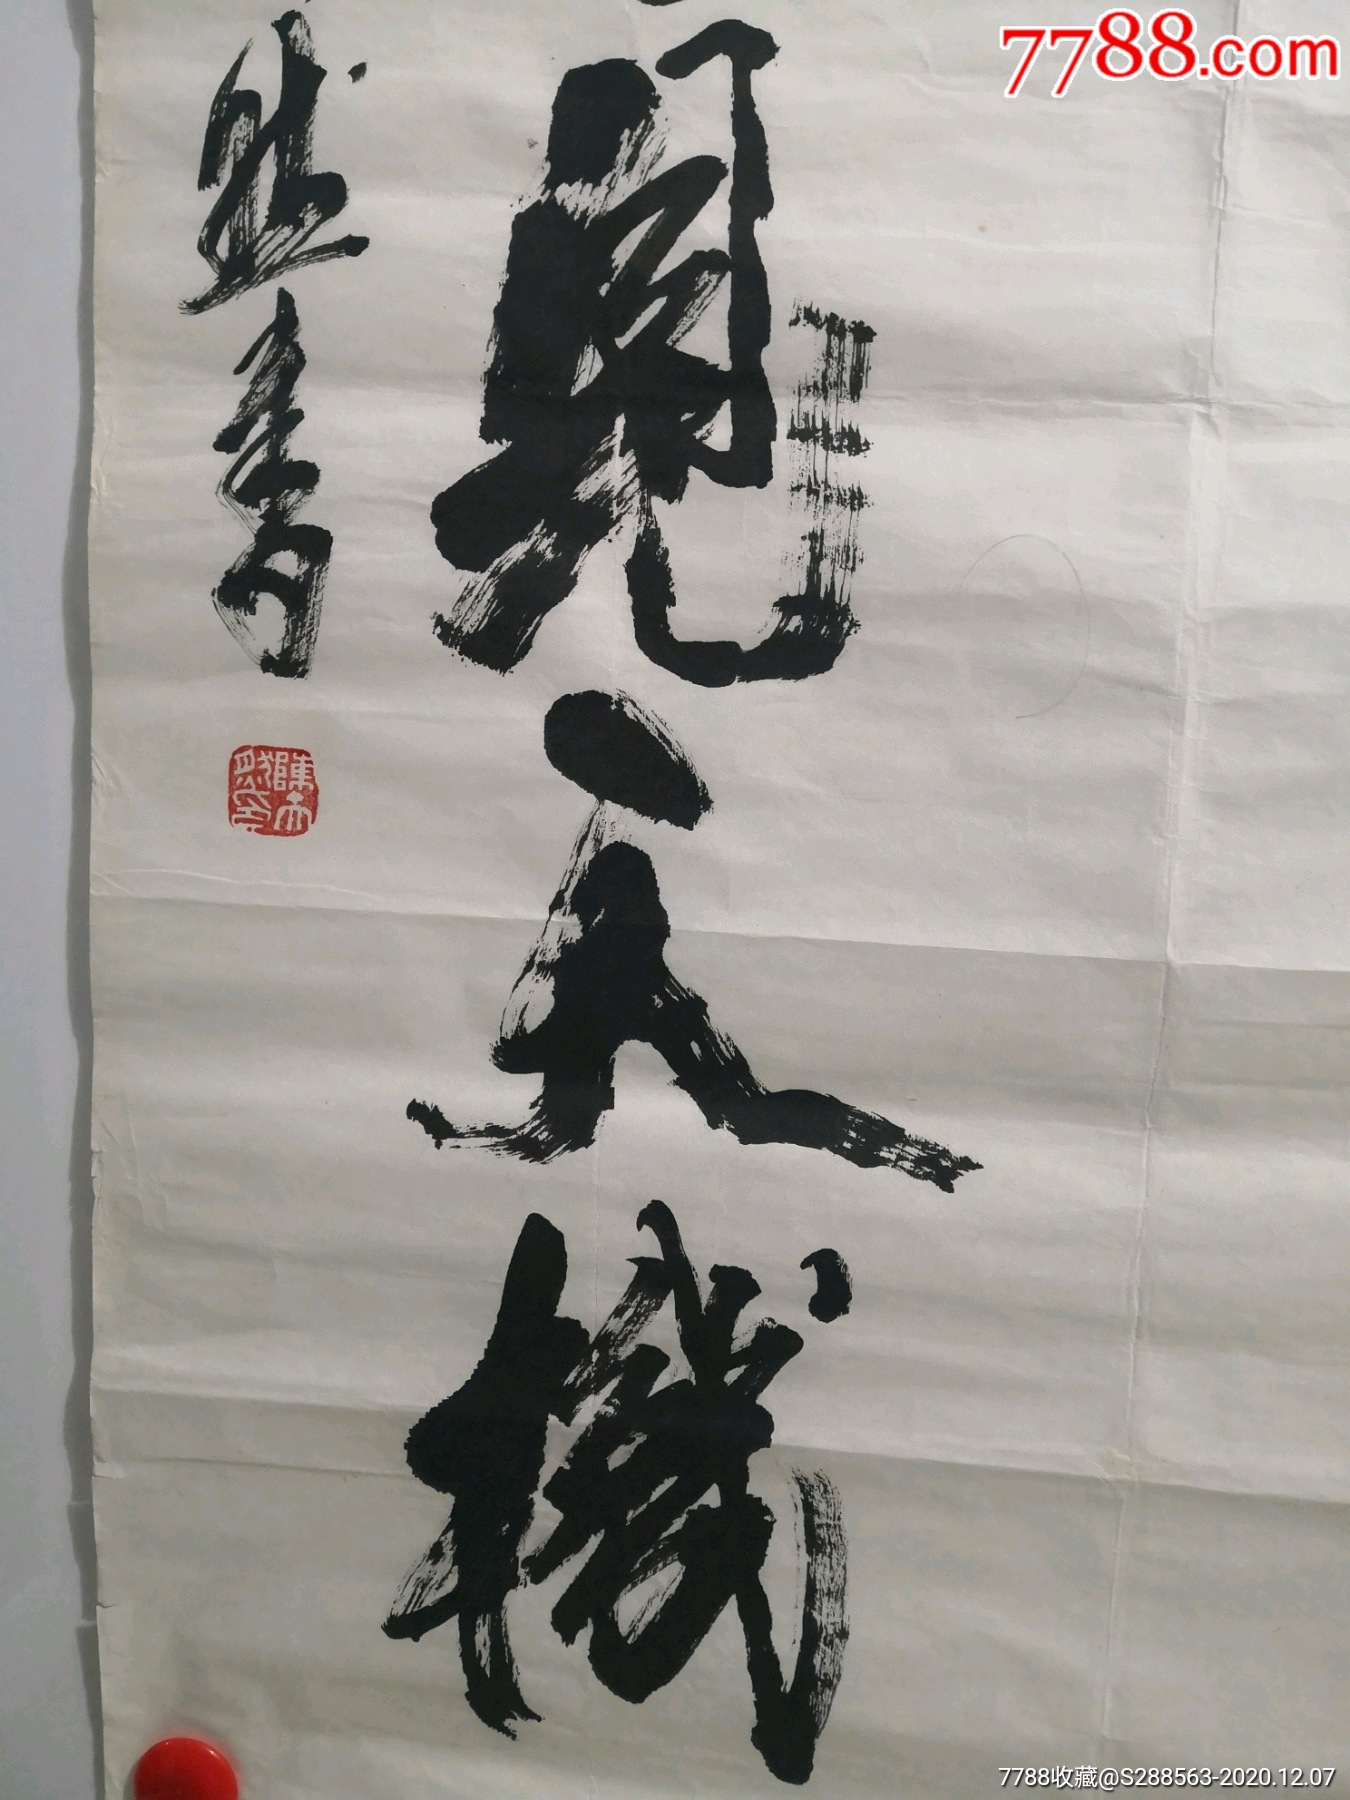 7788.com
天機
然書
陳天然印
7788收藏@S288563-2020.12.07